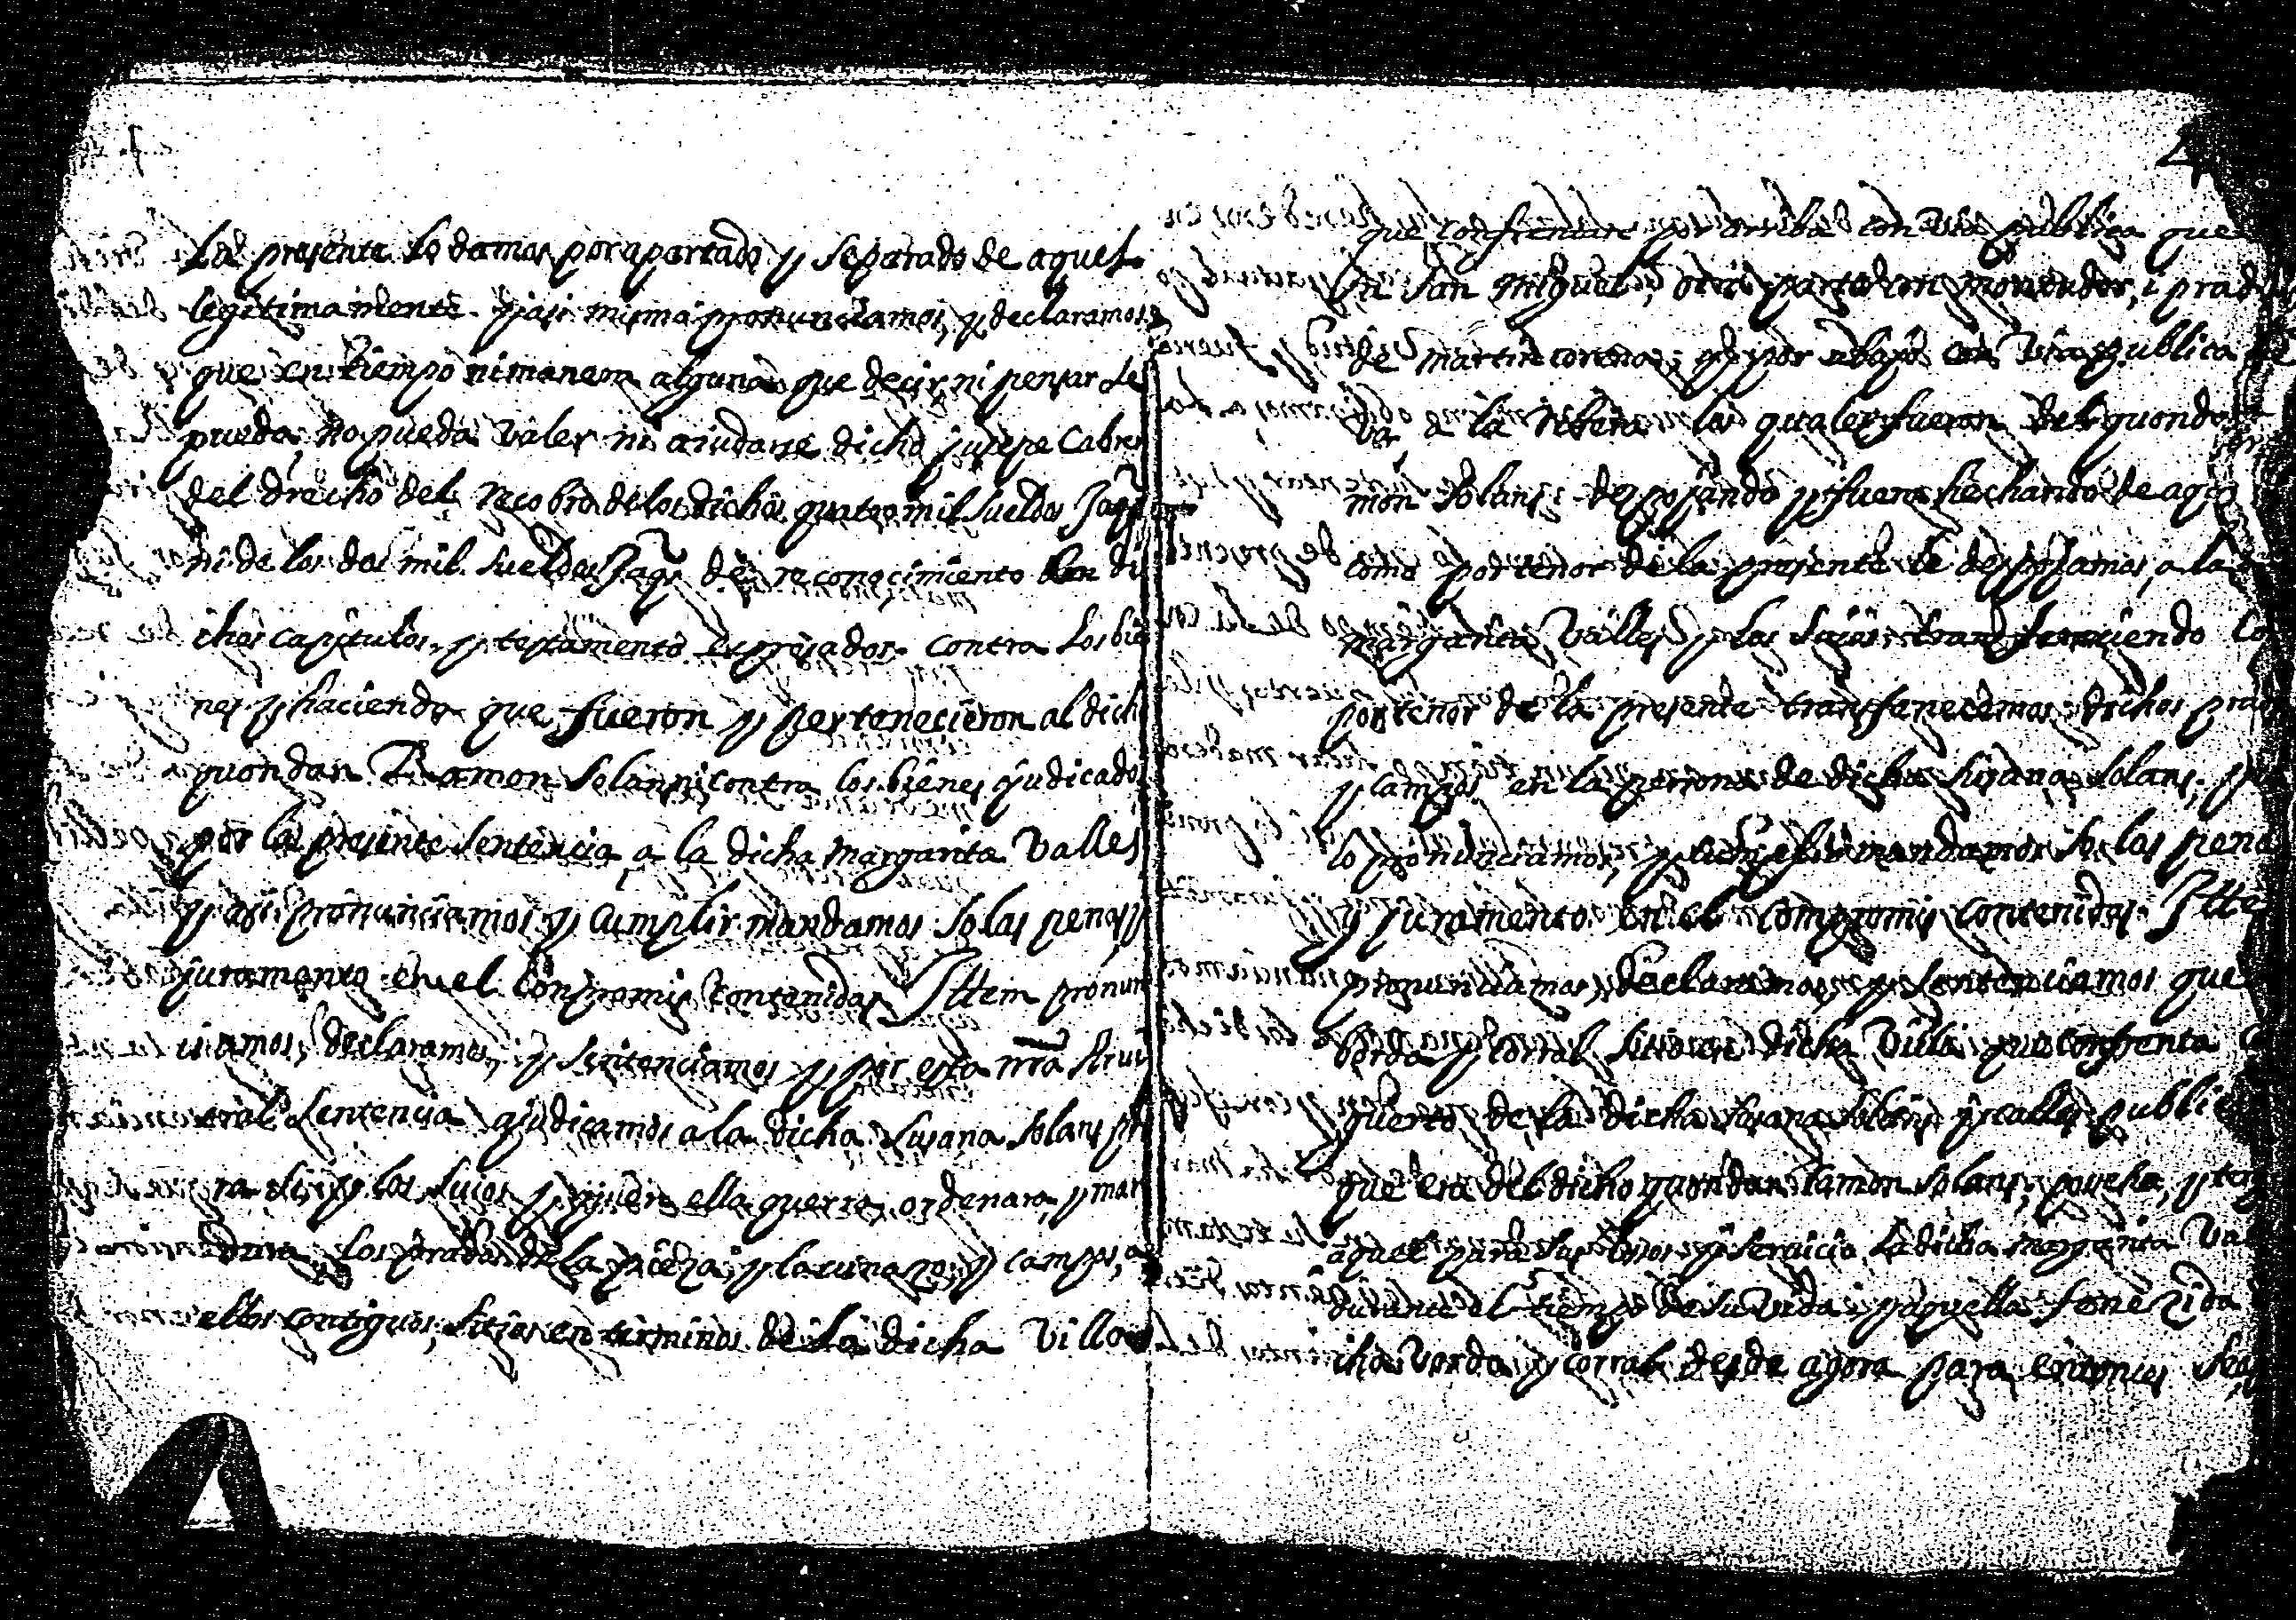 La presente lo damos por apartado y separado de aquel
legitimamente. y asi misma pronunciamos, y declaramos
que en tiempo ni manera alguna que decir, ni pensar se
pueda no pueda valer ni aiudarse dicho jusepe Cabrer
del drecho del recobro de los dichos quatro mil sueldos Jaqs
ni de los dos mil sueldos Jaqs de reconocimiento en di
chos capitulos, y testamento expresados contra los bie
nes y haciendo que fueron y pertenecieron al dich
quondan Ramon Solans, ni contra los bienes ajudicados
por la presente sentencia a la dicha Margarita Valles
y asi pronunciamos y cumplir mandamos so las penas y
juramento en el Compromis contenidos Ittem pronun
ciamos, declaramos, y sentenciamos y por esta nra Arui
tral sentencia ajudicamos a la dicha Susana Solans pa
ra si, y los suios y quien ella querra, ordenara, y man
dara, los prados de la y campos, a
ellos contiguos, sitios en terminos de la dicha Villa
4
que confrentan por arriba con via publica que
a San Miguel, otra parte con prado
de Martin y por abajo con via publica
va a la ribera los quales fueron del quondan
mon Solans despojando y fuera hechando de aque
como por tenor de la presente le despojamos, a la
Margarita Valles y los suios transfiriendo co
por tenor de la presente transferecemos dichos prados
y campos en la persona de dicha Susana Solans, y
lo pronunciamos, y mandamos so las pena
y juramento en el Compromis contenidos. Itte
pronunciamos, declaramos, y sentenciamos que
borda y corral sitio en dicha Villa que confrenta
guerto de la dicha Susana Solans y calles public
que era del dicho quondan Ramon Solans, y
aquel para sus usos y seruicio la dicha Margarita Val
durante el tiempo de su vida, y aquella fenezida
cha borda y corral desde agora para entonces sea